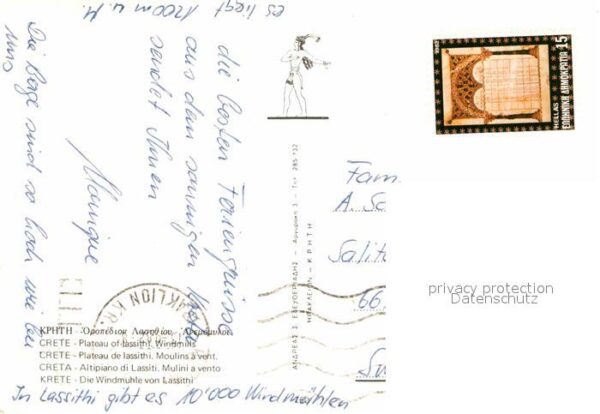 es liegt 1200m ü. M.
die besten Feriengrüsse
aus dem sonnigen Kreta
sendet Ihnen
Monique
Die Berge sind so hoch wie bei
uns
ΚΡΗΤΗ - Ὀροπέδιον Λασηθίου. Ἀνεμόμυλοι
CRETE - Plateau of lassithi. Windmills
CRETE - Plateau de lassithi. Moulins à vent.
CRETA - Altipiano di Lassiti. Mulini a vento
KRETE - Die Windmühle von Lassithi
In Lassithi gibt es 10'000 Windmühlen
ΑΝΔΡΕΑΣ Σ. ΕΛΕΥΘΕΡΙΑΔΗΣ - Τηλ. 285 512
ΗΡΑΚΛΕΙΟΝ - ΚΡΗΤΗ
IRAKLION KR.
15
HELLAS
ΕΛΛΗΝΙΚΗ ΔΗΜΟΚΡΑΤΙΑ
Fam.
A. Sc
Salit
66
privacy protection
Datenschutz